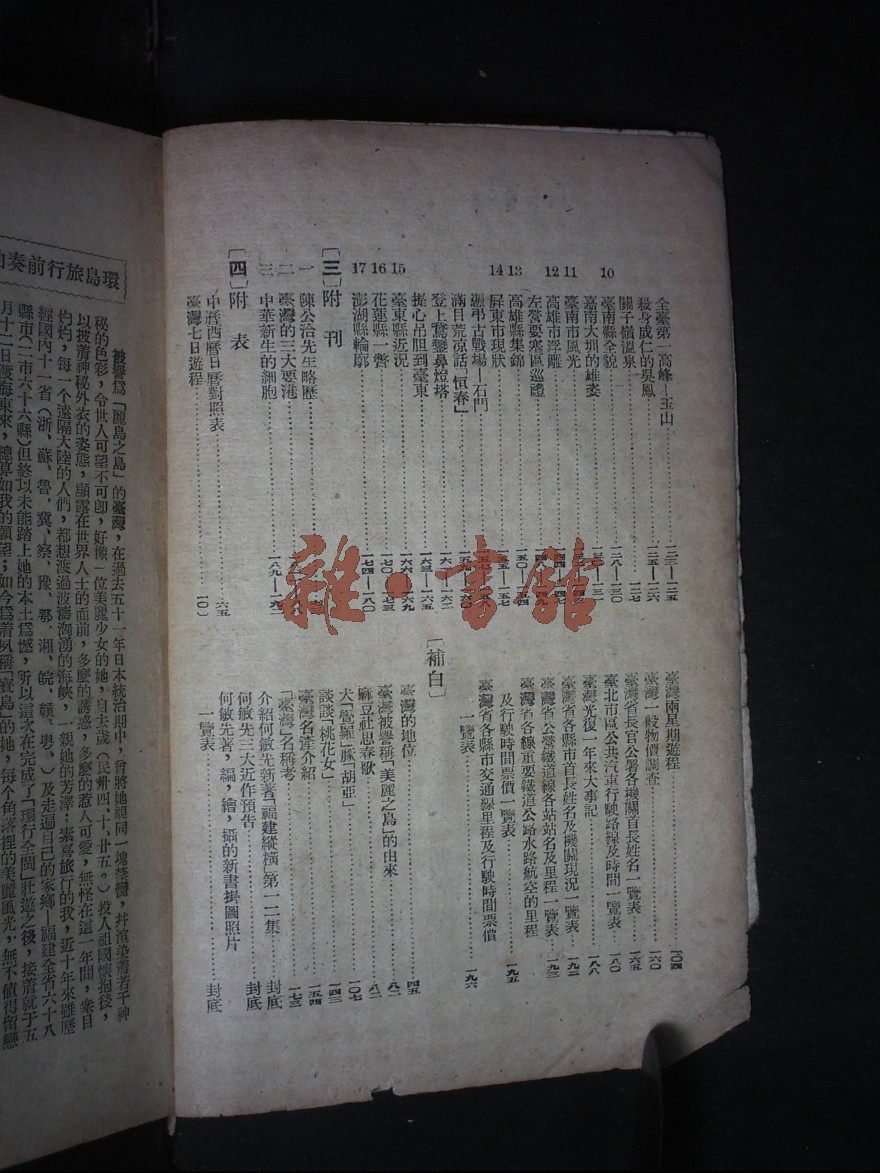 全臺第一高峰—玉山……一二三—一二五
殺身成仁的吳鳳……一二五—一二六
關子嶺溫泉……一二七
10 臺南縣全貌……一二八—一三〇
嘉南大圳的雄姿
11 臺南市風光
12 高雄市浮雕
左營要塞區巡禮
13 高雄縣集錦
14 屏東市現狀
憑弔古戰場—石門
滿目荒凉話「恒春」
登上鵞鑾鼻燈塔
提心吊胆到臺東……一六三—一六五
15 臺東縣近況……一六六—一六九
16 花蓮縣一瞥……一七〇—一七三
17 澎湖縣輪廓……一七四—一八〇
〔三〕附刊
一 陳公洽先生略歷
二 臺灣的三大要港
三 中華新生的細胞……一八九—一九二
〔四〕附表
中曆西曆日曆對照表……六五
臺灣七日遊程……一〇一
臺灣兩星期遊程……一〇四
臺灣一般物價調查……一六〇
臺灣省長官公署各機關首長姓名一覽表……一六五
臺北市區公共汽車行駛路線及時間一覽表……一八〇
臺灣光復一年來大事記……一八八
臺灣省各縣市首長姓名及機關現況一覽表……一九二
臺灣省公營鐵道線各站站名及里程一覽表……一九三
臺灣省各線重要鐵道公路水路航空的里程
及行駛時間票價一覽表……一九五
臺灣省各縣市交通線里程及行駛時間票價
一覽表……一九六
〔補白〕
臺灣的地位……四五
臺灣被譽稱「美麗之島」的由來……八二
麻豆社思春歌……八二
犬「甇羅」豚「胡亞」……一〇七
談談「桃花女」……一四三
臺灣名產介紹……一五四
「臺灣」名稱考……一七三
介紹何敏先新著「福建縱橫」第一二集……封底
何敏先三大近作預告……封底
何敏先著，編，繪，攝的新書掛圖照片
一覽表……封底
環島旅行前奏曲
被譽爲「麗島之島」的臺灣，在過去五十一年日本統治期中，曾將她視同一塊禁臠，并渲染着若干神
秘的色彩，令世人可望不可卽，好像一位美麗少女的她，自去歲（民卅四、十、廿五。）投入祖國懷抱後，
以披着神秘外衣的姿態，顯露在世界人士的面前，多麼的誘惑，多麼的惹人可愛，無怪在這一年間，衆目
灼灼，每一個遠隔大陸的人們，都想渡過波濤洶湧的海峽，一親她的芳澤：素喜旅行的我，近十年來雖歷
經國內十一省（浙、蘇、魯、冀、察、豫、鄂、湘、皖、贛、粵、）及走遍自己的家鄉—福建全省六十八
縣市（二市六十六縣）但終以未能踏上她的本土爲憾，所以這次在完成了「環行全閩」壯遊之後，接着就于五
月十二日渡海東來，總算如我的願望；如今爲着夙稱「寶島」的她，每個角落裡的美麗風光，無不值得留戀
雜·書館